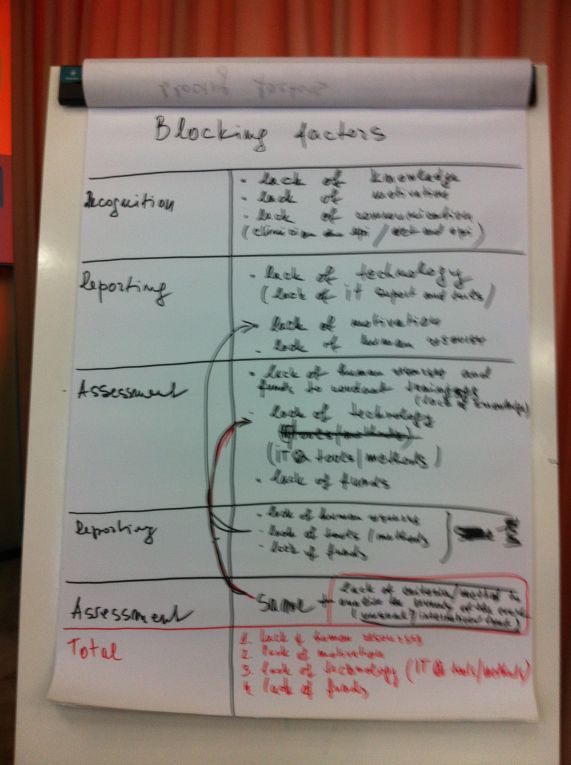 Blocking factors
Recognition
- lack of knowledge
- lack of motivation
- lack of communication
(clinician epi / vet and epi)
Reporting
- lack of technology
(lack of IT support and tools)
lack of motivation
- lack of human resources
Assessment
- lack of human resources and
funds to conduct trainings
(lack of knowledge)
- lack of technology
(tools/methods)
(IT & tools/methods)
- lack of funds
Reporting
- lack of human resources
- lack of tools/methods
- lack of funds
Assessment
same + lack of criteria/method to
of the event
(unusual? international
Total
1. lack of human resources
2. lack of motivation
3. lack of technology (IT & tools/methods)
4. lack of funds